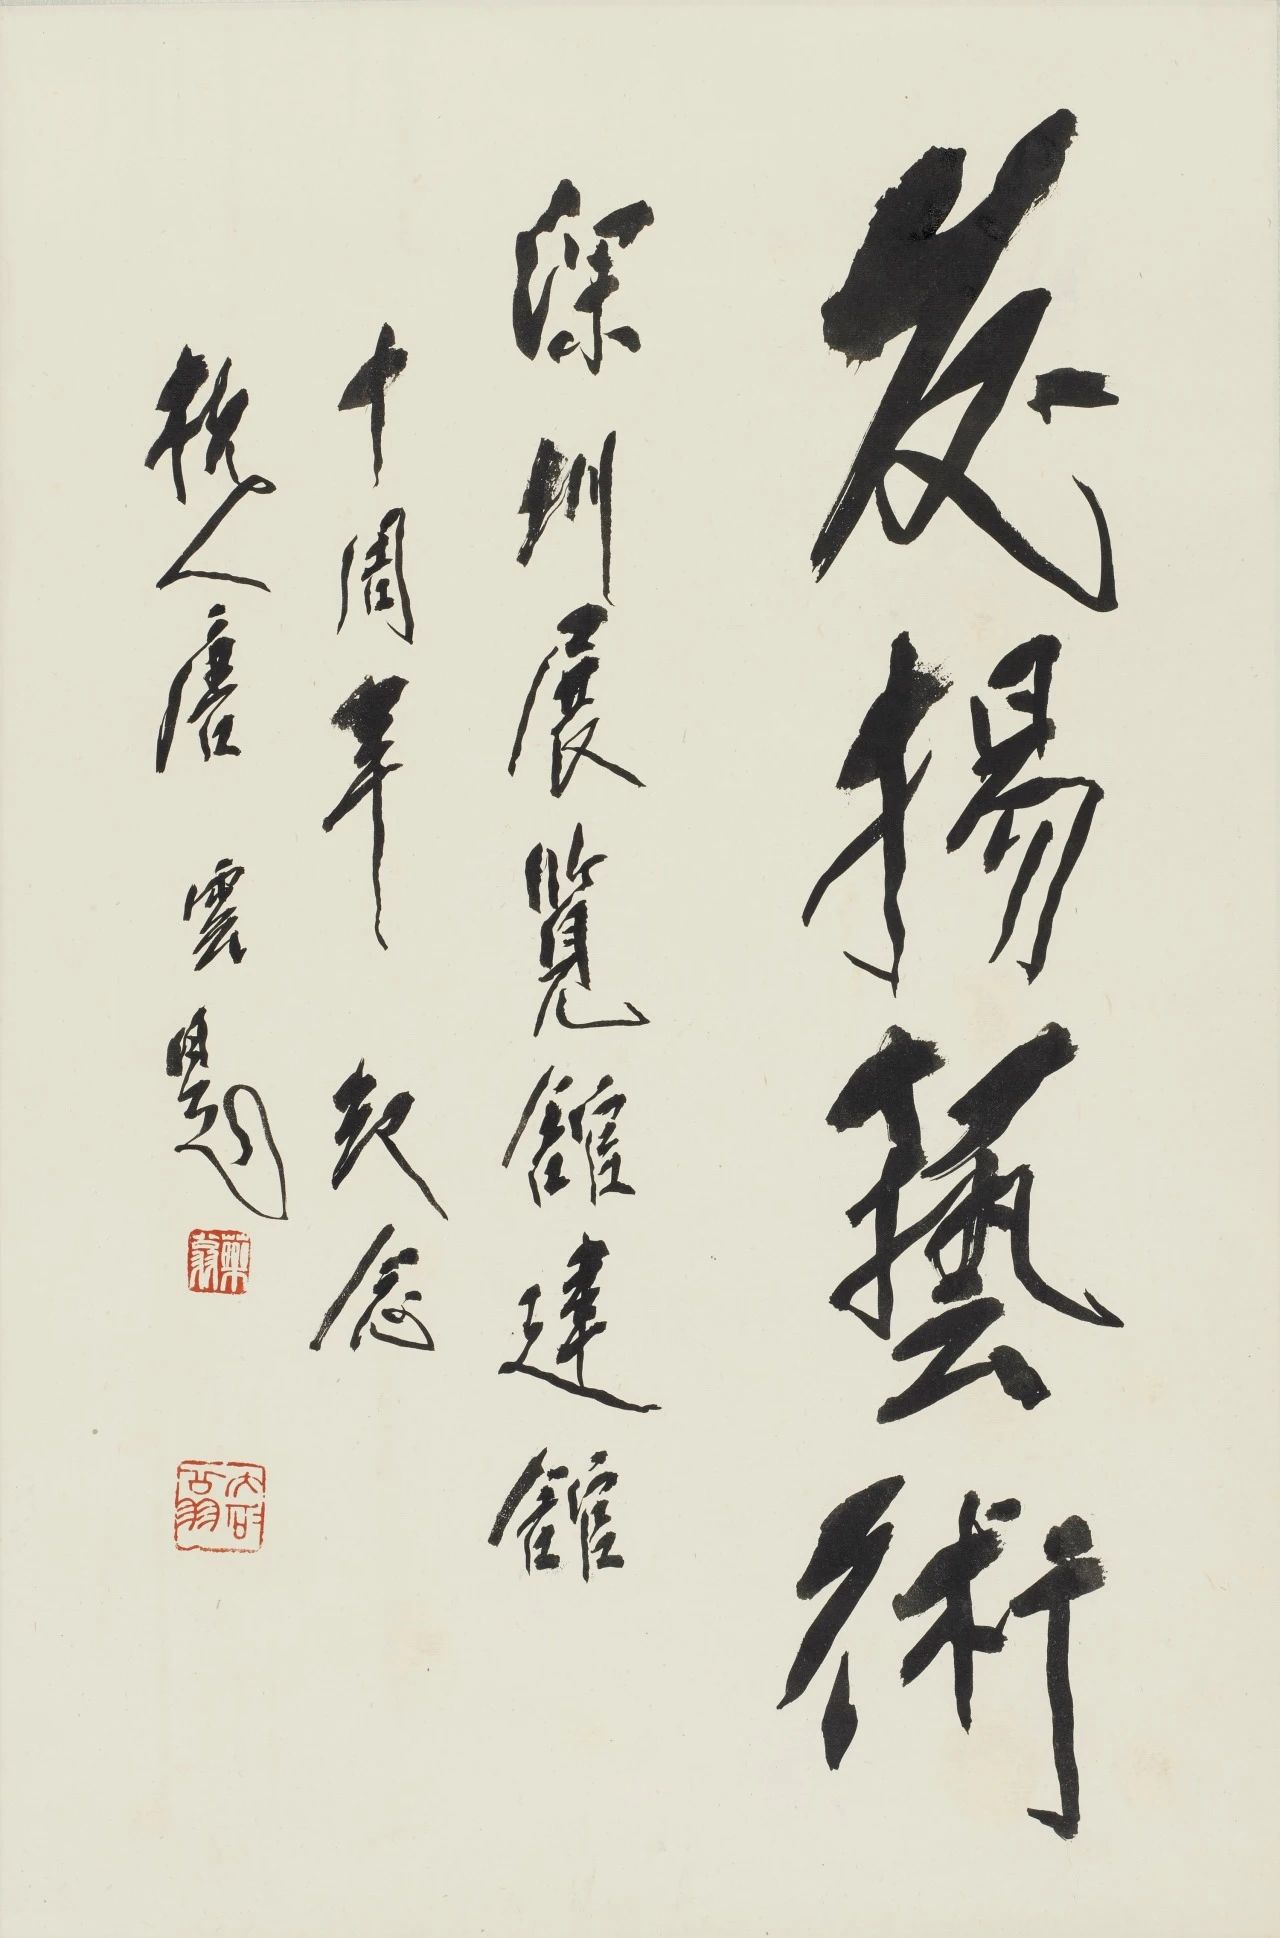 发揚藝術
深圳展覽館建館
十周年 紀念
杭人唐雲題
藥翁
大石翁